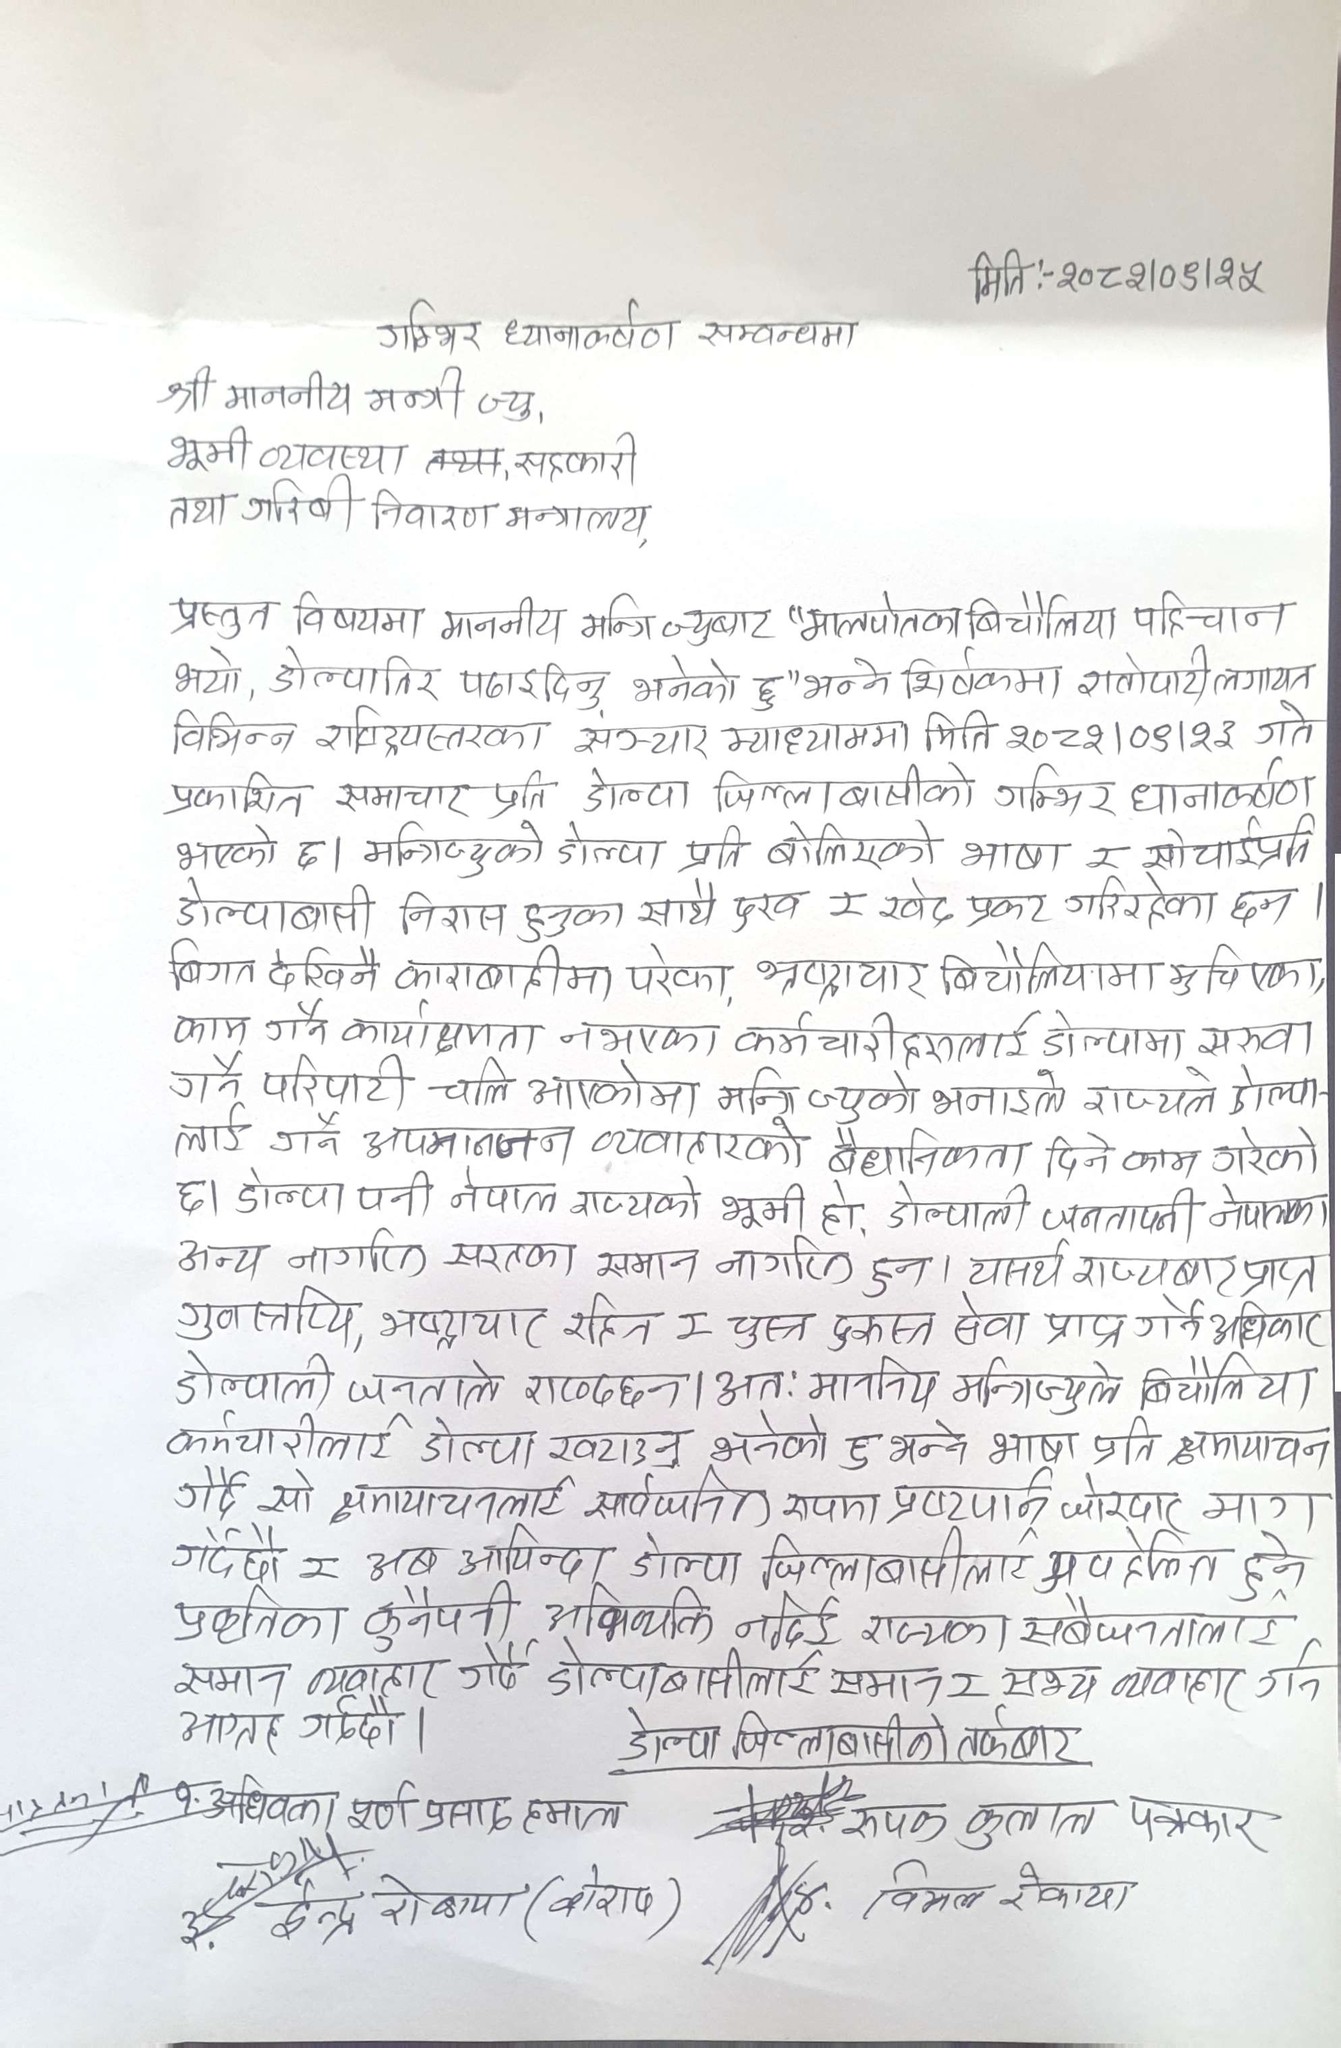 मिति:-२०८२।०९।२५
गम्भिर ध्यानाकर्षण सम्वन्धमा
श्री माननीय मन्त्री ज्यु,
भूमी व्यवस्था तथा, सहकारी
तथा गरिबी निवारण मन्त्रालय,
प्रस्तुत विषयमा माननीय मन्त्रि ज्युबाट "मालपोतका बिचौलिया पहिचान
भयो, डोल्पातिर पठाइदिनु भनेको छु" भन्ने शिर्षकमा रातोपाटी लगायत
विभिन्न राष्ट्रियस्तरका संञ्चार म्याध्याममा मिति २०८२।०९।२३ गते
प्रकाशित समाचार प्रति डोल्पा जिल्लाबासीको गम्भिर धानाकर्षण
भएको छ। मन्त्रिज्युको डोल्पा प्रति बोलिएको भाषा र सोचाईप्रति
डोल्पाबासी निरास हुनुका साथै दुख र खेद प्रकट गरिरहेका छन ।
बिगत देखिनै काराबाहीमा परेका, भ्रष्ट्राचार बिचौलियामा मुछिएका,
काम गर्ने कार्यक्षमता नभएका कर्मचारीहरुलाई डोल्पामा सरुवा
गर्ने परिपाटी चलि आएकोमा मन्त्रि ज्युको भनाइले राज्यले डोल्पा-
लाई गर्ने अपमानजन व्यवाहारको बैधानिकता दिने काम गरेको
छ। डोल्पा पनी नेपाल राज्यको भूमी हो, डोल्पाली जनतापनी नेपालका
अन्य नागरिक सरहका समान नागरिक हुन। यसर्थ राज्यबाट प्राप्त
गुणस्तरिय, भष्ट्राचार रहित र चुस्त दुरुस्त सेवा प्राप्त गर्ने अधिकार
डोल्पाली जनताले राख्दछन। अत: माननिय मन्त्रिज्युले बिचौलिया
कर्मचारीलाई डोल्पा खटाउनु भनेको छु भन्ने भाषा प्रति क्षमायाचन
गर्दै सो क्षमायाचनलाई सार्वजनिक रुपमा प्रष्टपार्न जोरदार माग
गर्दछौ र अब आयिन्दा डोल्पा जिल्लाबासीलाई अवहेलित हुने
प्रकृतिका कुनैपनी अभिव्यक्ति नदिई राज्यका सबैजनतालाई
समान व्यवाहार गर्दै डोल्पाबासीलाई समान र सभ्य व्यवाहार गर्न
आग्रह गर्दछौ ।
डोल्पा जिल्लाबासीको तर्फबाट
१. अधिवक्ता पूर्ण प्रसाद हमाल
२. रुपक कुलाल पत्रकार
३. ईन्द्र रोकाया
४. विमल रोकाया